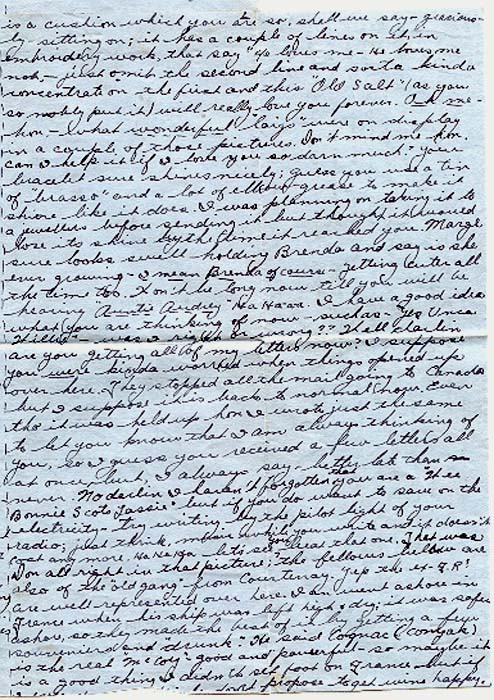 is a cushion which you are so, shall we say - gracious-
ly - sitting on; it has a couple of lines on it, in
embroidery work, that say "He loves me - He loves me
not, - just omit the second line and sorta kinda
concentrate on the first and this "Old Salt" (as you
so nobly put it) will really love you forever. Oh me-
hon - what wonderful "laigs" were on display
in a couple of those pictures. Don't mind me hon
can I help it if I love you so darn much? Your
bracelet sure shines nicely; guess you use a tin
of "brasso" and a lot of elbow-grease to make it
shine like it does. I was planning on taking it to
a jewellers before sending it but thought it would
lose its shine by the time it reached you. Marge
sure looks swell holding Brenda and say is she
ever growing - I mean Brenda of course - getting cuter all
the time too. Won't be long now till you will be
hearing Auntie Audrey" Ha Haar. I have a good idea
what you are thinking of now - such as - "Yes Unca
was I right or wrong?? Well charlin
are you getting all of my letters now? I suppose
you were kinda worried when things opened up
over here. They stopped all the mail going to Canada
but I suppose it is back to normal now. Even
tho it was held up hon I wrote just the same
to let you know that I am always thinking of
you, so I guess you received a few letters all
at once, but, I always say - better late than
never. No darlin I haven't forgotten you are a "Wee
Bonnie Scots Lassie" but if you do want to save on the
electricity - try writing by the pilot light of your
radio; just think, while you write and it doesn't
cost anymore. Ha Ha Ha let's see you beat that one. That was
Don all right in that picture; the fellows below are
also of the "old gang" from Courtenay. Yep the ex-F.R's
are well represented over here. Ian went ashore in
France when his ship was left high & dry; it was safer
ashore, so they made the best of it by getting a few
souvenirs and drunk." He said Cognac (Conyak)
is the real McCoy - good and powerful - so maybe it
is a good thing I didn't set foot on France but if
propose to get wind happy.